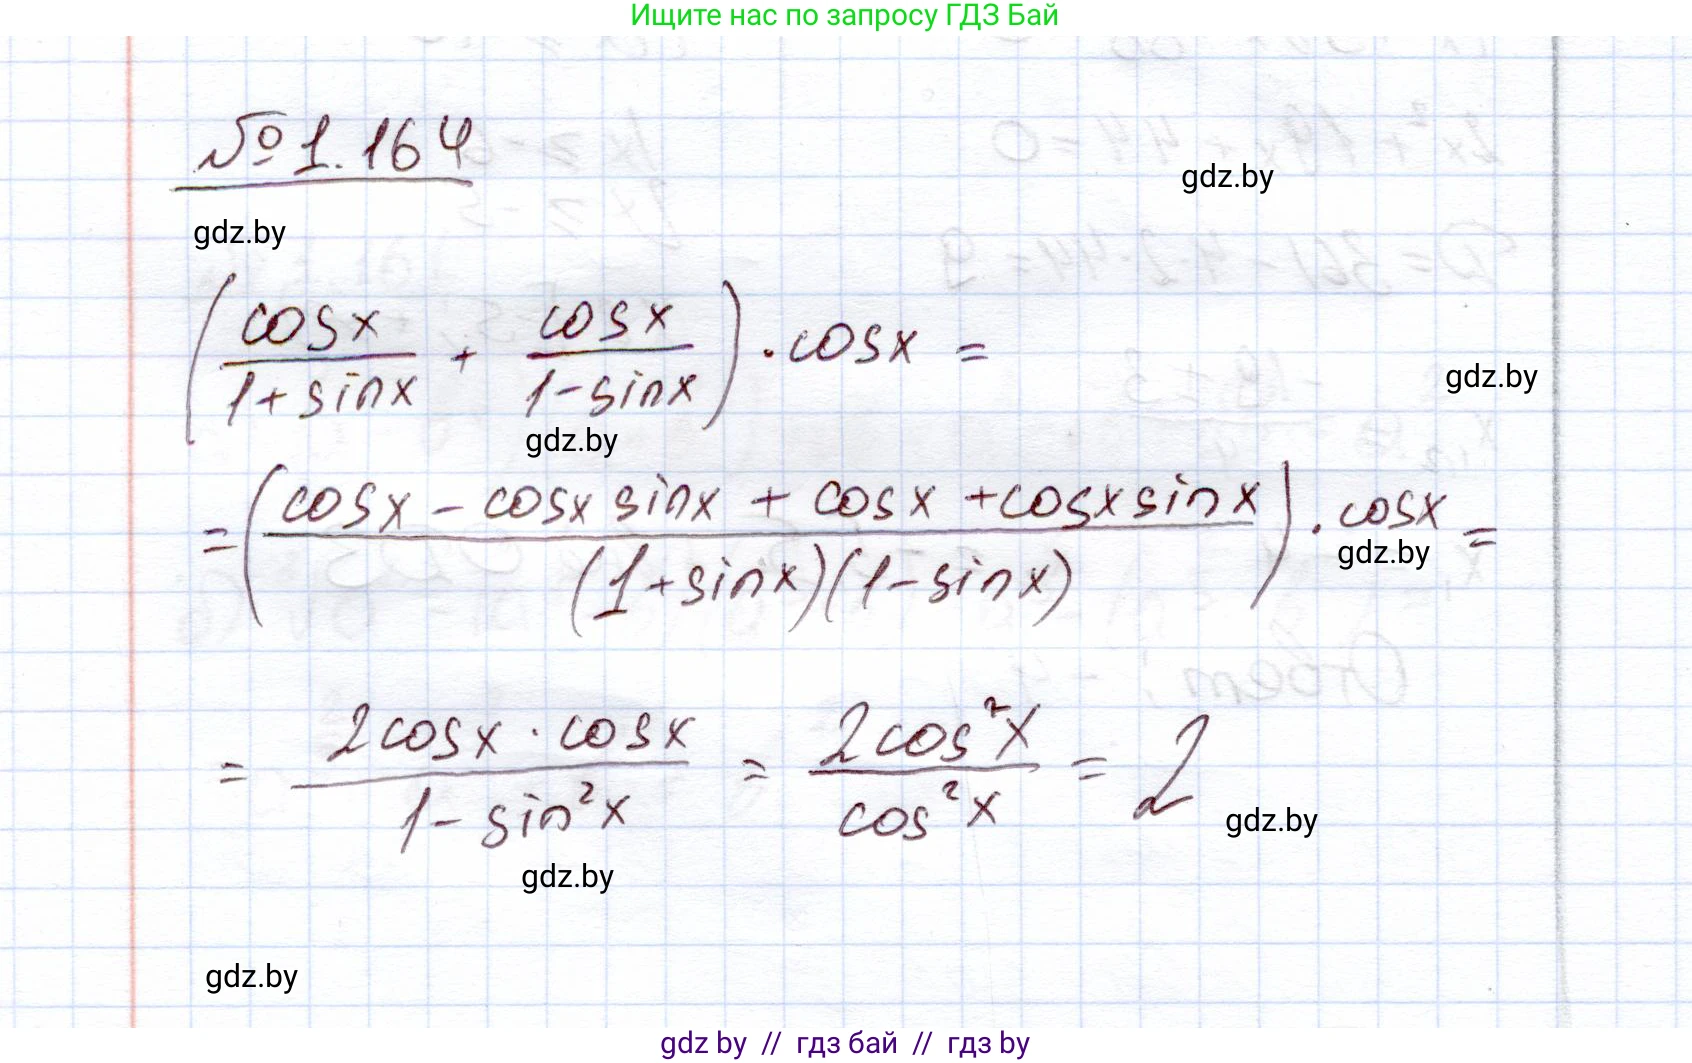 Ищите нас по запросу ГДЗ Бай
№1.164
gdz.by
gdz.by
(cosx/(1+sinx) + cosx/(1-sinx)) · cosx =
gdz.by
gdz.by
=((cosx - cosx sinx + cosx + cosxsinx)/((1+sinx)(1-sinx))) · cosx =
gdz.by
= (2cosx · cosx)/(1-sin²x) = (2cos²x)/(cos²x) = 2
gdz.by
gdz.by
gdz.by
gdz by // гдз бай // гдз by